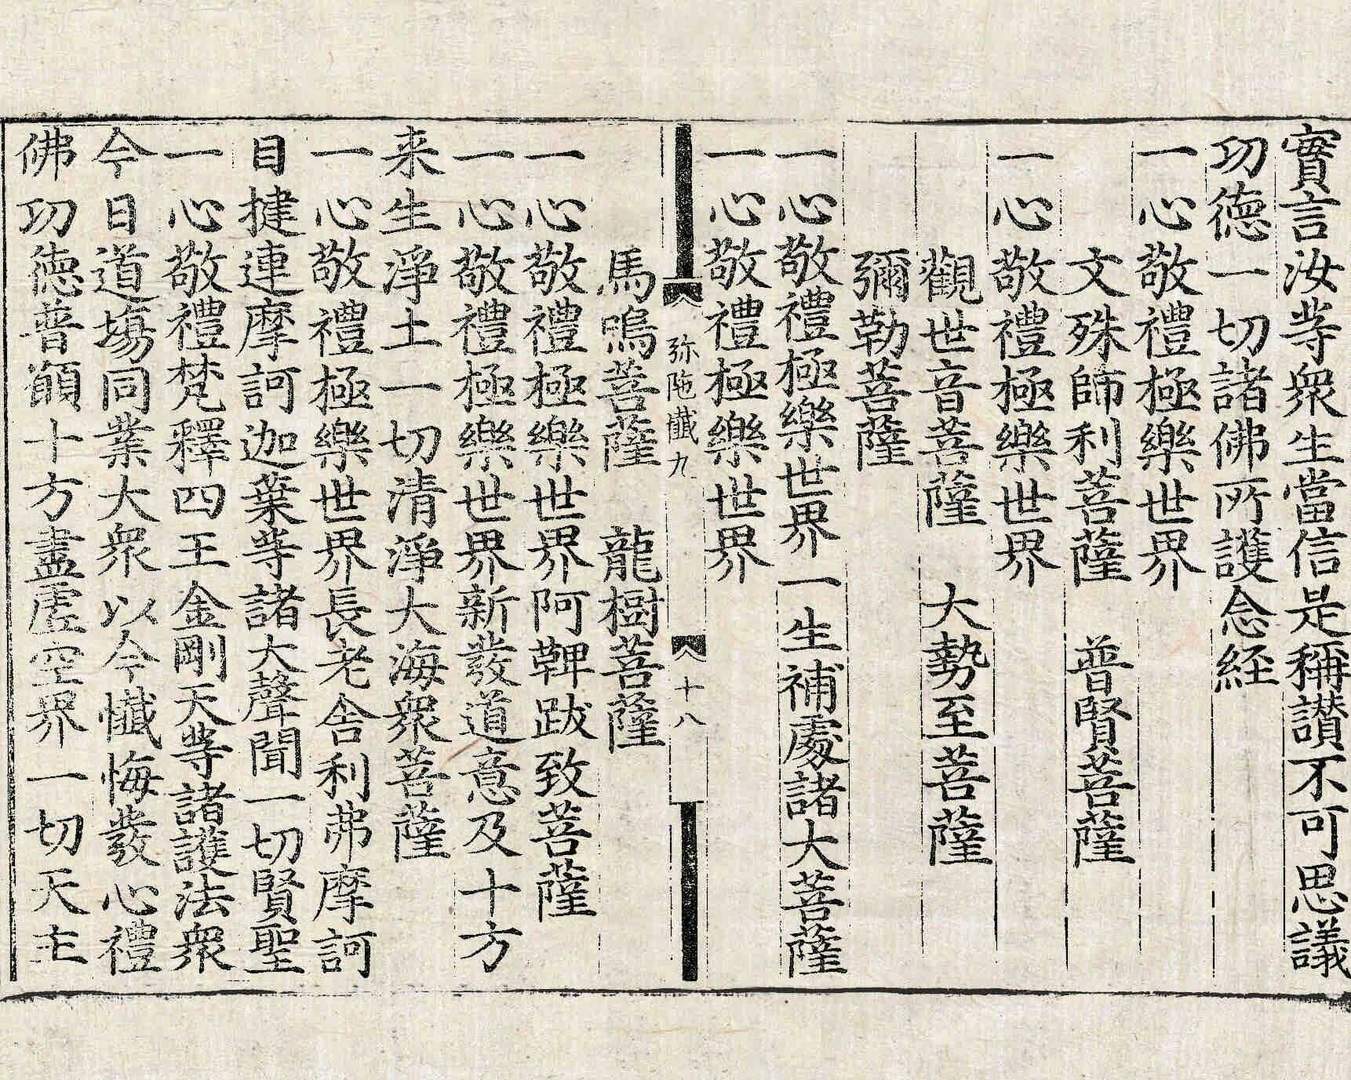 實言汝等衆生當信是稱讃不可思議
功德一切諸佛所護念經
一心敬禮極樂世界
文殊師利菩薩　普賢菩薩
一心敬禮極樂世界
觀世音菩薩　大勢至菩薩
彌勒菩薩
一心敬禮極樂世界一生補處諸大菩薩
一心敬禮極樂世界
弥陁懺九　十八
馬鳴菩薩　龍樹菩薩
一心敬禮極樂世界阿鞞跋致菩薩
一心敬禮極樂世界新發道意及十方
来生淨土一切清淨大海衆菩薩
一心敬禮極樂世界長老舍利弗摩訶
目揵連摩訶迦葉等諸大聲聞一切賢聖
一心敬禮梵釋四王金剛天等諸護法衆
今日道場同業大衆以今懺悔發心禮
佛功德普願十方盡虛空界一切天主